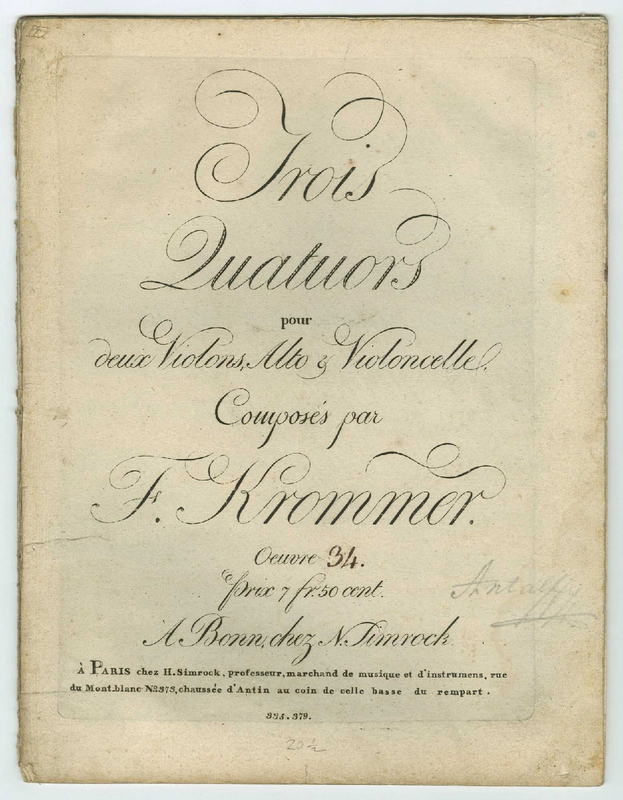 Trois
Quatuors
pour
deux Violons, Alto & Violoncelle.
Composés par
F. Krommer.
Oeuvre 34.
Prix 7 fr. 50 cent.
A Bonn, chez N. Simrock
À PARIS chez H. Simrock, professeur, marchand de musique et d'instrumens, rue
du Mont-blanc N2373, chaussée d'Antin au coin de celle basse du rempart.
335.379.
20½